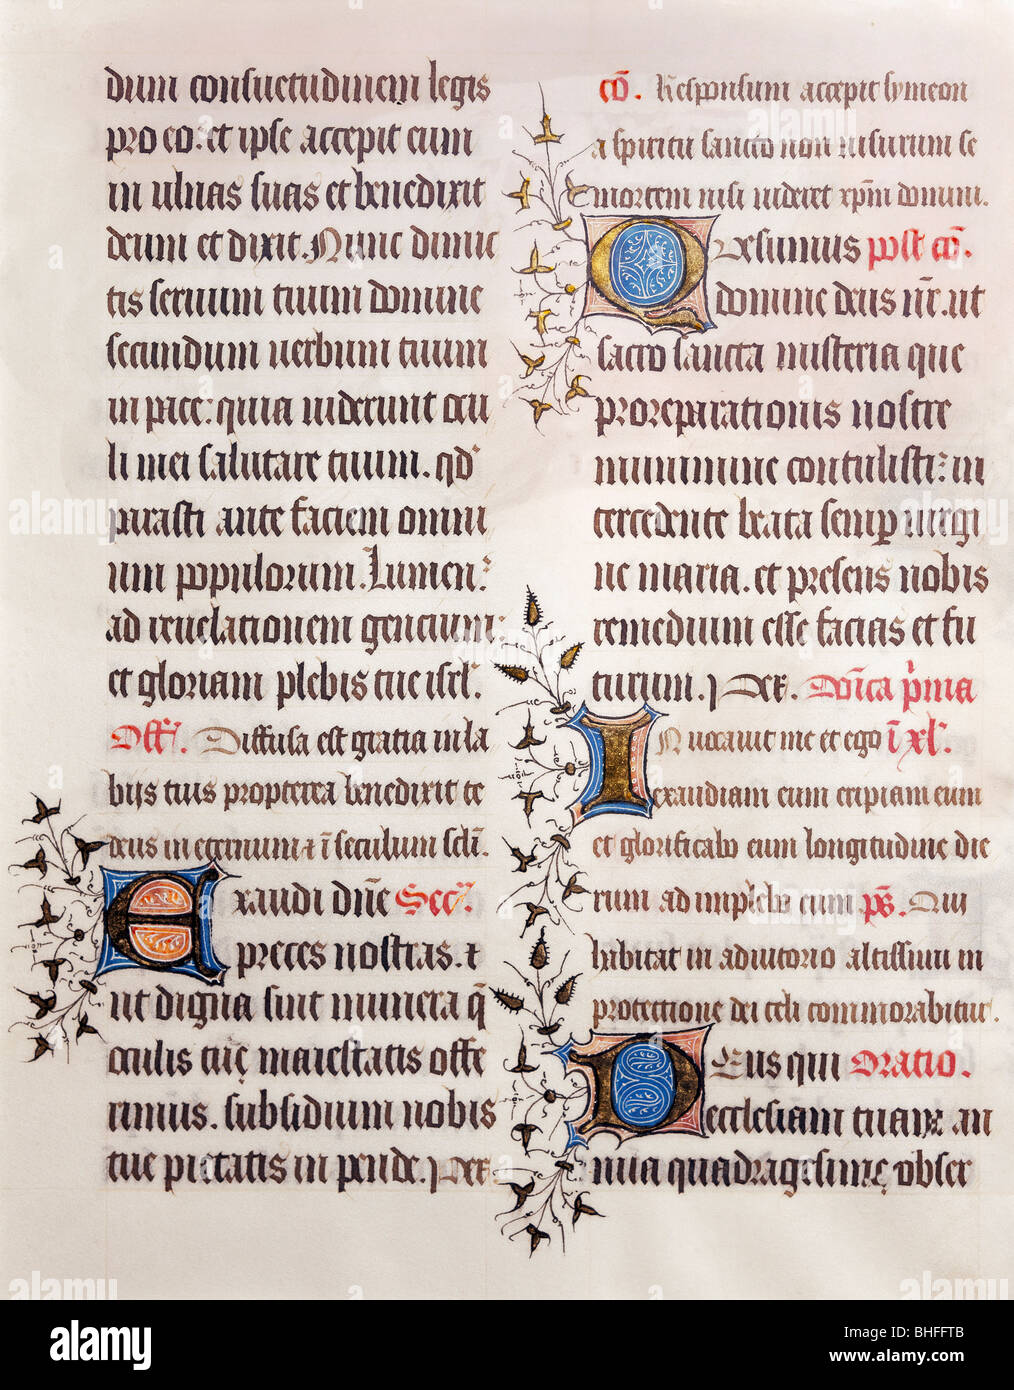 dum consuetudinem legis
pro eo. et ipse accepit eum
in ulnas suas et benedixit
deum et dixit. Nunc dimic
tis seruum tuum domine
secundum uerbum tuum
in pace: quia uiderunt ocu
li mei salutare tuum. qd
parasti ante faciem omni
um populorum. Lumen:
ad reuelationem gencium:
et gloriam plebis tue isrl.
Off. Diffusa est gratia in la
biis tuis propterea benedixit te
deus in eternum et ī seculum scli.
Exaudi dūe Secr.
preces nostras. et
ut digna sint munera q̄
oculis tuę maiestatis offe
rimus. subsidium nobis
tue pietatis in pende. Per
cō. Responsum accepit symeon
a spiritu sancto non uisurum se
mortem nisi uideret xpm domini.
Quesumus post cō.
domine deus nr̄. ut
sacro sancta misteria que
pro reparationis nostre
munimine contulisti: in
tercedente beata semp uirgi
ne maria. et presens nobis
remedium esse facias et fu
turum. Per. Dn̄ica pma
Inuocauit me et ego ī xl.
exaudiam eum eripiam eum
et glorificabo eum longitudine die
rum ad implebo eum ps. Qui
habitat in adiutorio altissimi in
protectione dei celi commorabitur.
Deus qui Oratio.
ecclesiam tuam an
nua quadragesimę obser
alamy
Image ID: BHFFTB
www.alamy.com